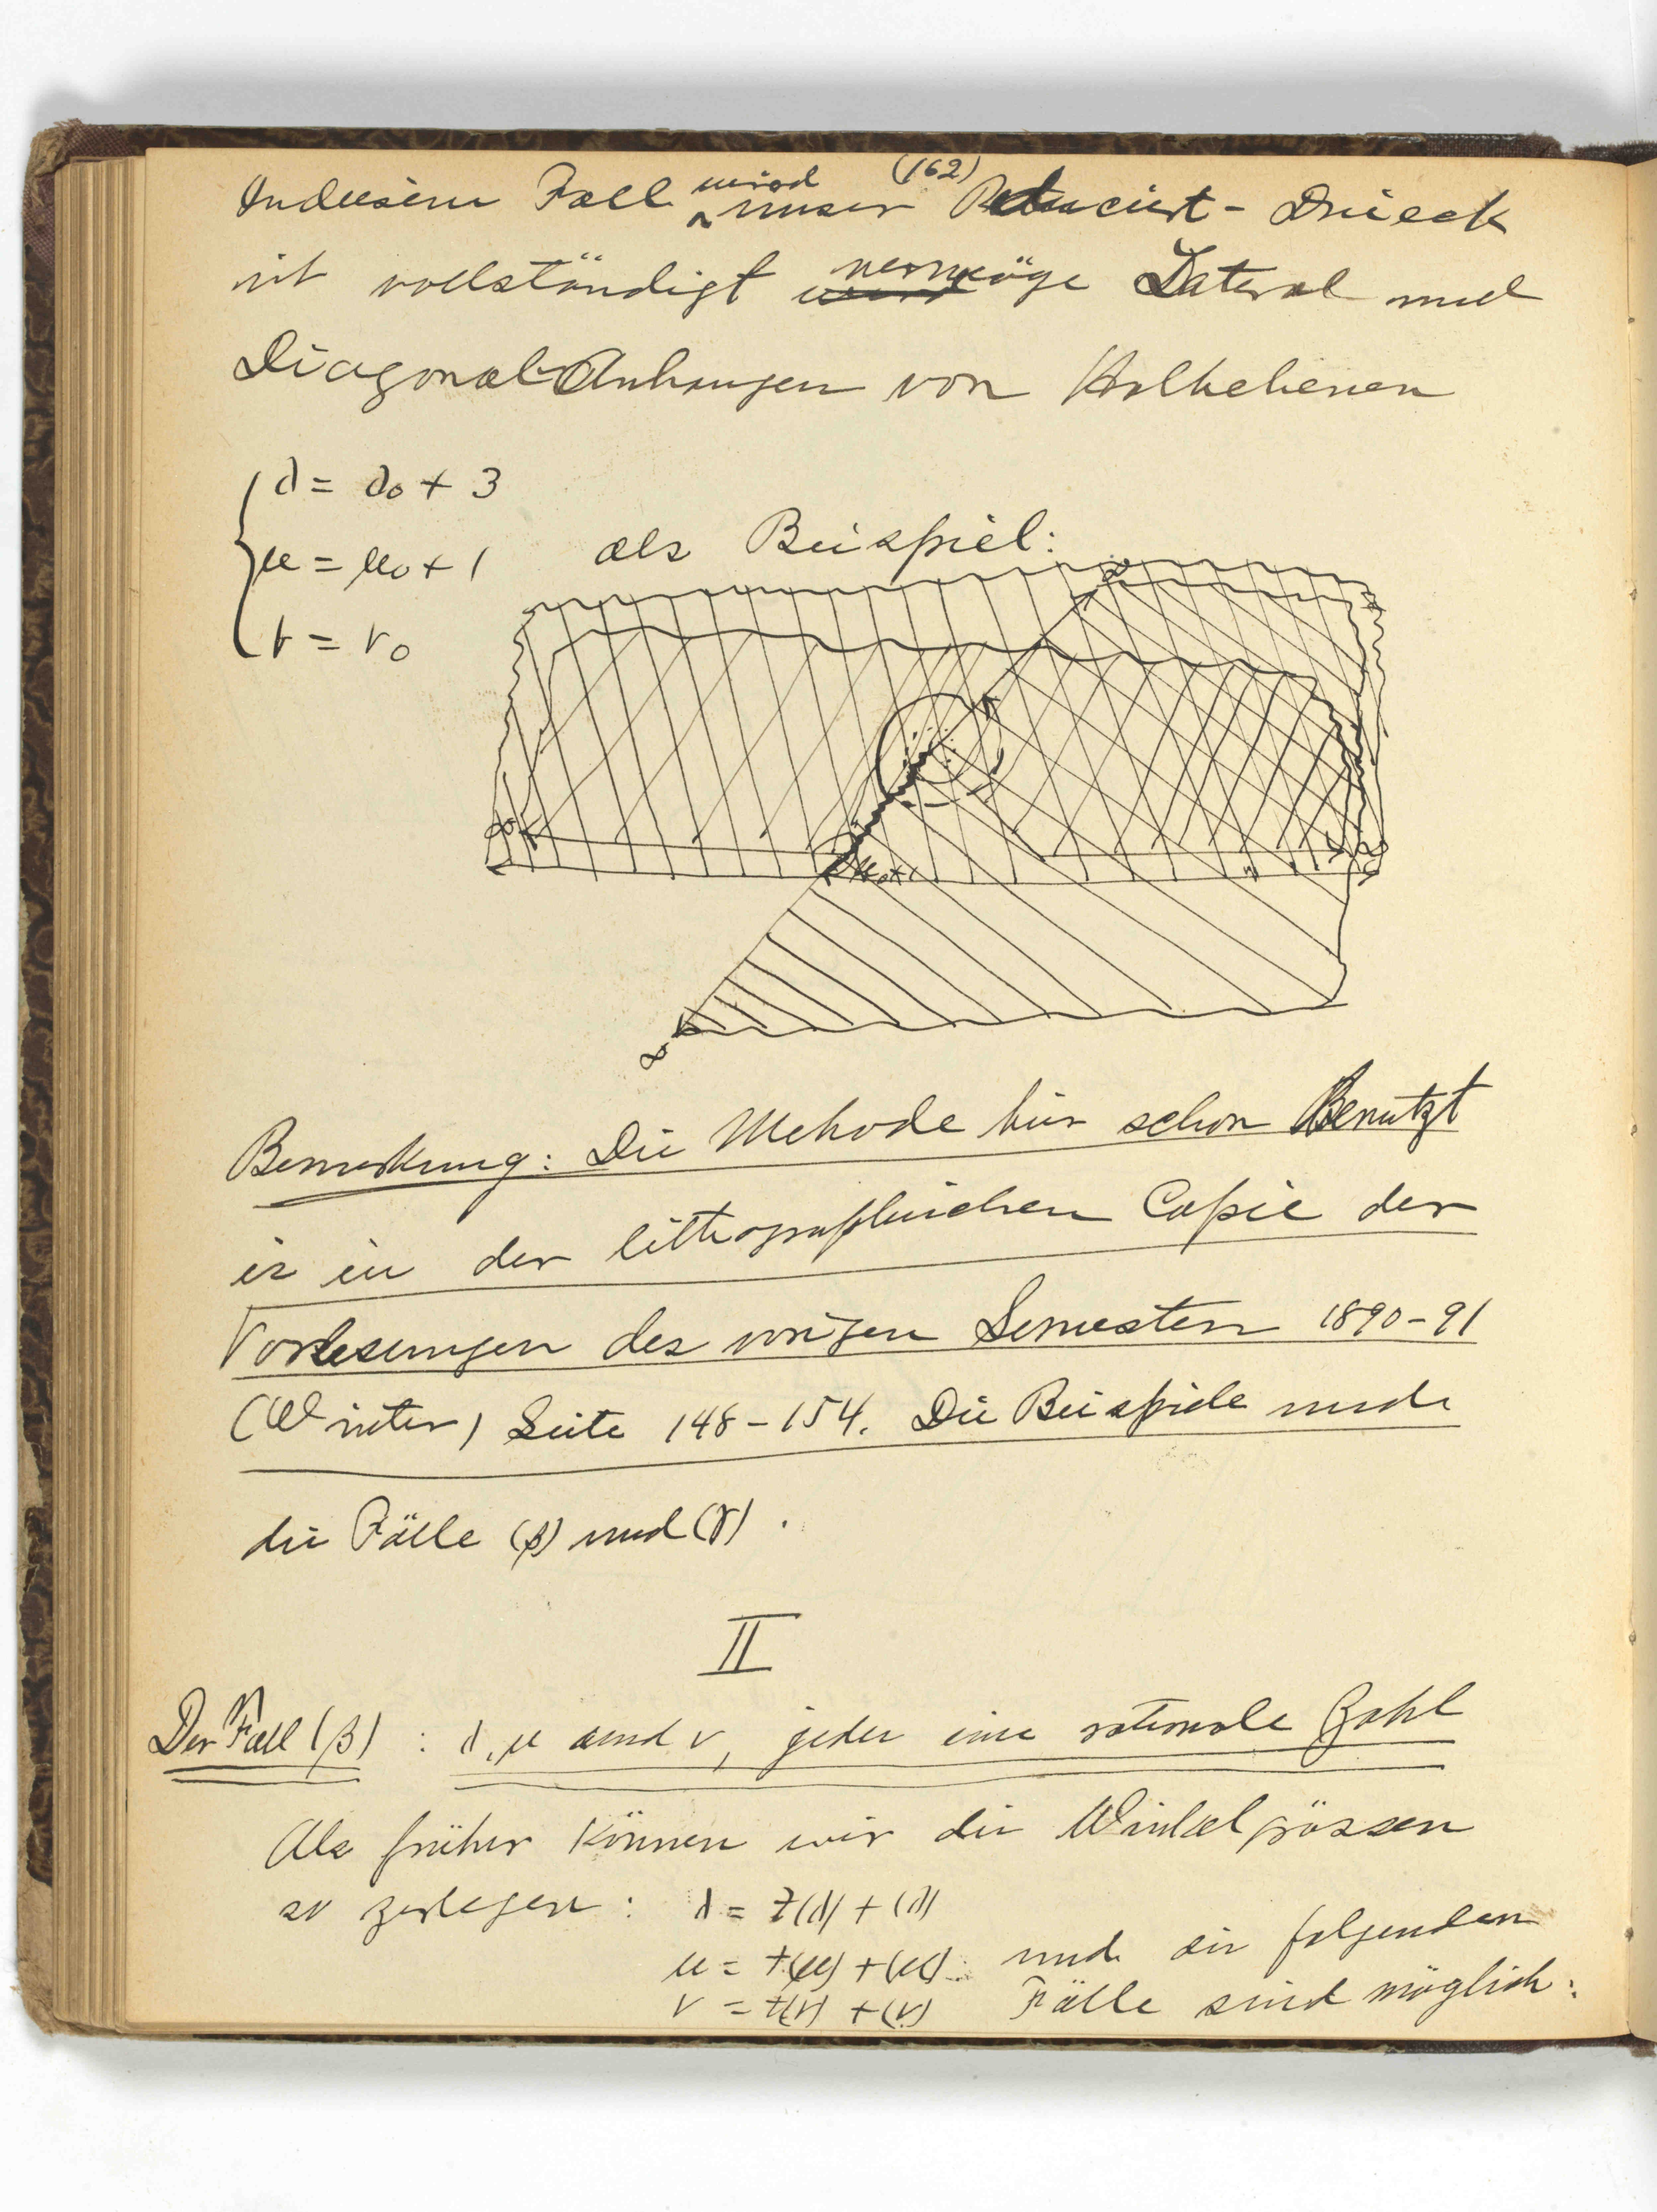 (162)
In diesem Fall wird unser Reduciert-Dreieck
ist vollständigt vermöge Lateral und
Diagonal Anhangen von Halbebenen
λ = λ₀ + 3
μ = μ₀ + 1 als Beispiel:
ν = ν₀
∞
∞ μ₀+1 ∞
∞
Bemerkung: Die Methode hier schon Benutzt
is in der litthographischen Copie der
Vorlesungen des vorigen Semestern 1890-91
(Winter) Seite 148-154. Die Beispiele und
die Fälle (β) und (γ).
II
Der Fall (β) : λ, μ and ν, jeder eine rationale Zahl
Als früher können wir die Winkelgrössen
so zerlegen: λ = ±(λ) + (λ)
μ = ±(μ) + (μ) und die folgenden
ν = ±(ν) + (ν) Fälle sind möglich: